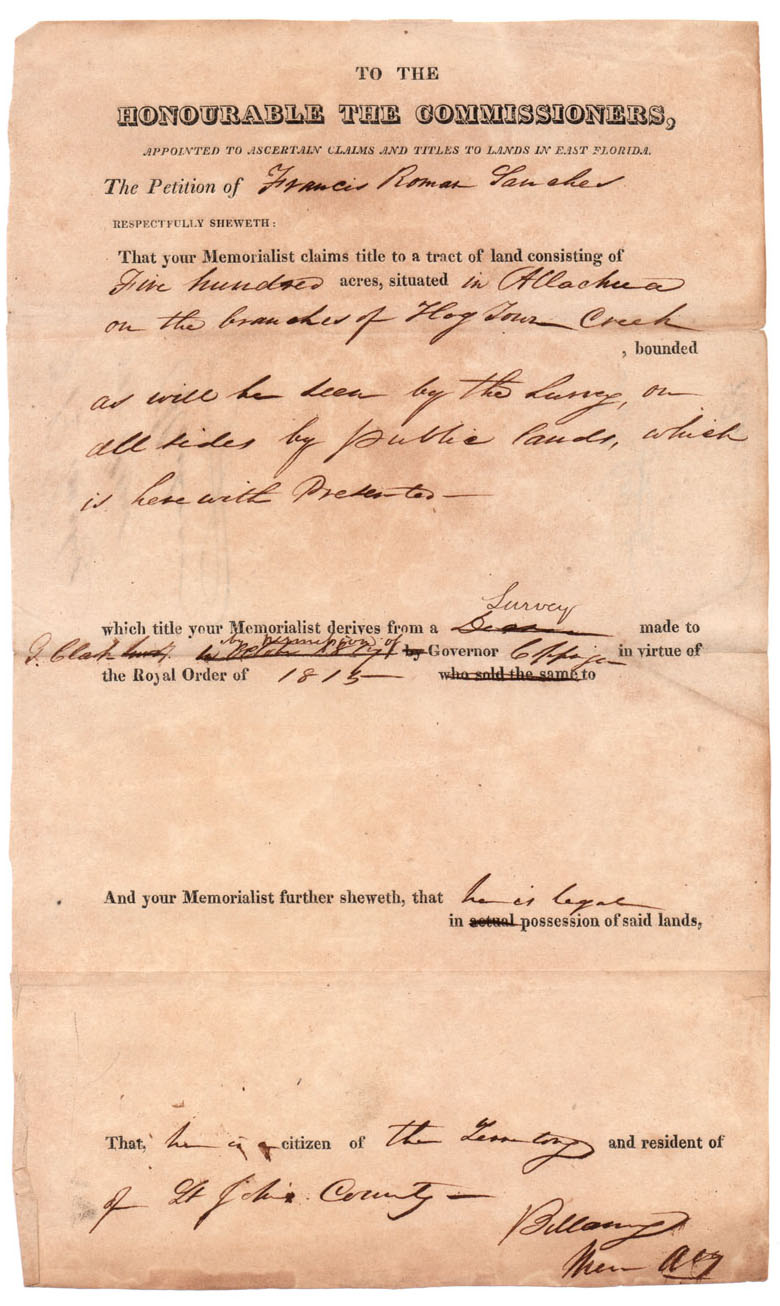 TO THE
HONOURABLE THE COMMISSIONERS,
APPOINTED TO ASCERTAIN CLAIMS AND TITLES TO LANDS IN EAST FLORIDA.
The Petition of Francis Roman Sanches
RESPECTFULLY SHEWETH:
That your Memorialist claims title to a tract of land consisting of
Five hundred acres, situated in Allachua
on the branches of Hog Town Creek
, bounded
as will be seen by the Survey, on
all sides by public lands, which
is herewith Presented—
Survey
which title your Memorialist derives from a made to
by permission of
by Governor Coppinger in virtue of
the Royal Order of 1815 who sold the same to
And your Memorialist further sheweth, that he is legal
in actual possession of said lands,
That, he is a citizen of the Territory and resident of
of St John's County—
Bellamy
Atty